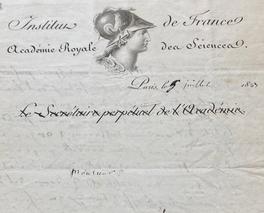 Institut de France
Académie Royale des Sciences.
Paris, le 5 juillet 18
Le Secrétaire perpétuel de l'Académie
Monsieur